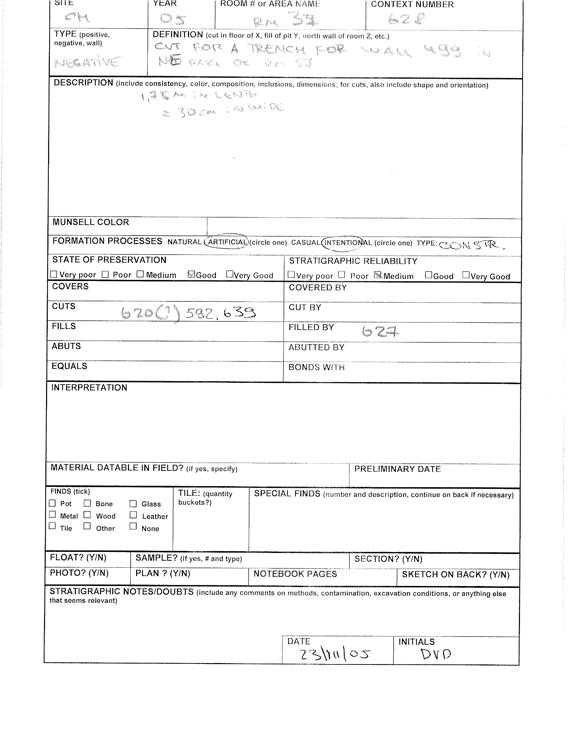 SITE YEAR ROOM # or AREA NAME CONTEXT NUMBER
CM 05 RM 37 628
TYPE (positive, negative, wall) DEFINITION (cut in floor of X, fill of pit Y, north wall of room Z, etc.)
NEGATIVE CUT FOR A TRENCH FOR WALL 499 IN
PART OF RM
DESCRIPTION (include consistency, color, composition, inclusions, dimensions; for cuts, also include shape and orientation)
1,75 M IN LENG
≈ 30cm IN WIDE
MUNSELL COLOR
FORMATION PROCESSES NATURAL ARTIFICIAL (circle one) CASUAL INTENTIONAL (circle one) TYPE: CONSTR.
STATE OF PRESERVATION STRATIGRAPHIC RELIABILITY
Very poor Poor Medium Good Very Good Very poor Poor Medium Good Very Good
COVERS COVERED BY
CUTS 620(?) 592, 639 CUT BY
FILLS FILLED BY 627
ABUTS ABUTTED BY
EQUALS BONDS WITH
INTERPRETATION
MATERIAL DATABLE IN FIELD? (if yes, specify) PRELIMINARY DATE
FINDS (tick) TILE: (quantity buckets?) SPECIAL FINDS (number and description, continue on back if necessary)
Pot Bone Glass
Metal Wood Leather
Tile Other None
FLOAT? (Y/N) SAMPLE? (if yes, # and type) SECTION? (Y/N)
PHOTO? (Y/N) PLAN ? (Y/N) NOTEBOOK PAGES SKETCH ON BACK? (Y/N)
STRATIGRAPHIC NOTES/DOUBTS (include any comments on methods, contamination, excavation conditions, or anything else
that seems relevant)
DATE INITIALS
23/11/05 DVD